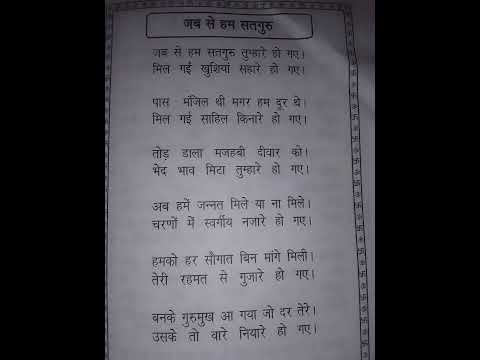 जब से हम सतगुरु
जब से हम सतगुरु तुम्हारे हो गए।
मिल गई खुशियां सहारे हो गए।
पास मंजिल थी मगर हम दूर थे।
मिल गई साहिल किनारे हो गए।
तोड़ डाला मजहबी दीवार को।
भेद भाव मिटा तुम्हारे हो गए।
अब हमें जन्नत मिले या ना मिले।
चरणों में स्वर्गीय नजारे हो गए।
हमको हर सौगात बिन मांगे मिली।
तेरी रहमत से गुजारे हो गए।
बनके गुरुमुख आ गया जो दर तेरे।
उसके तो वारे नियारे हो गए।